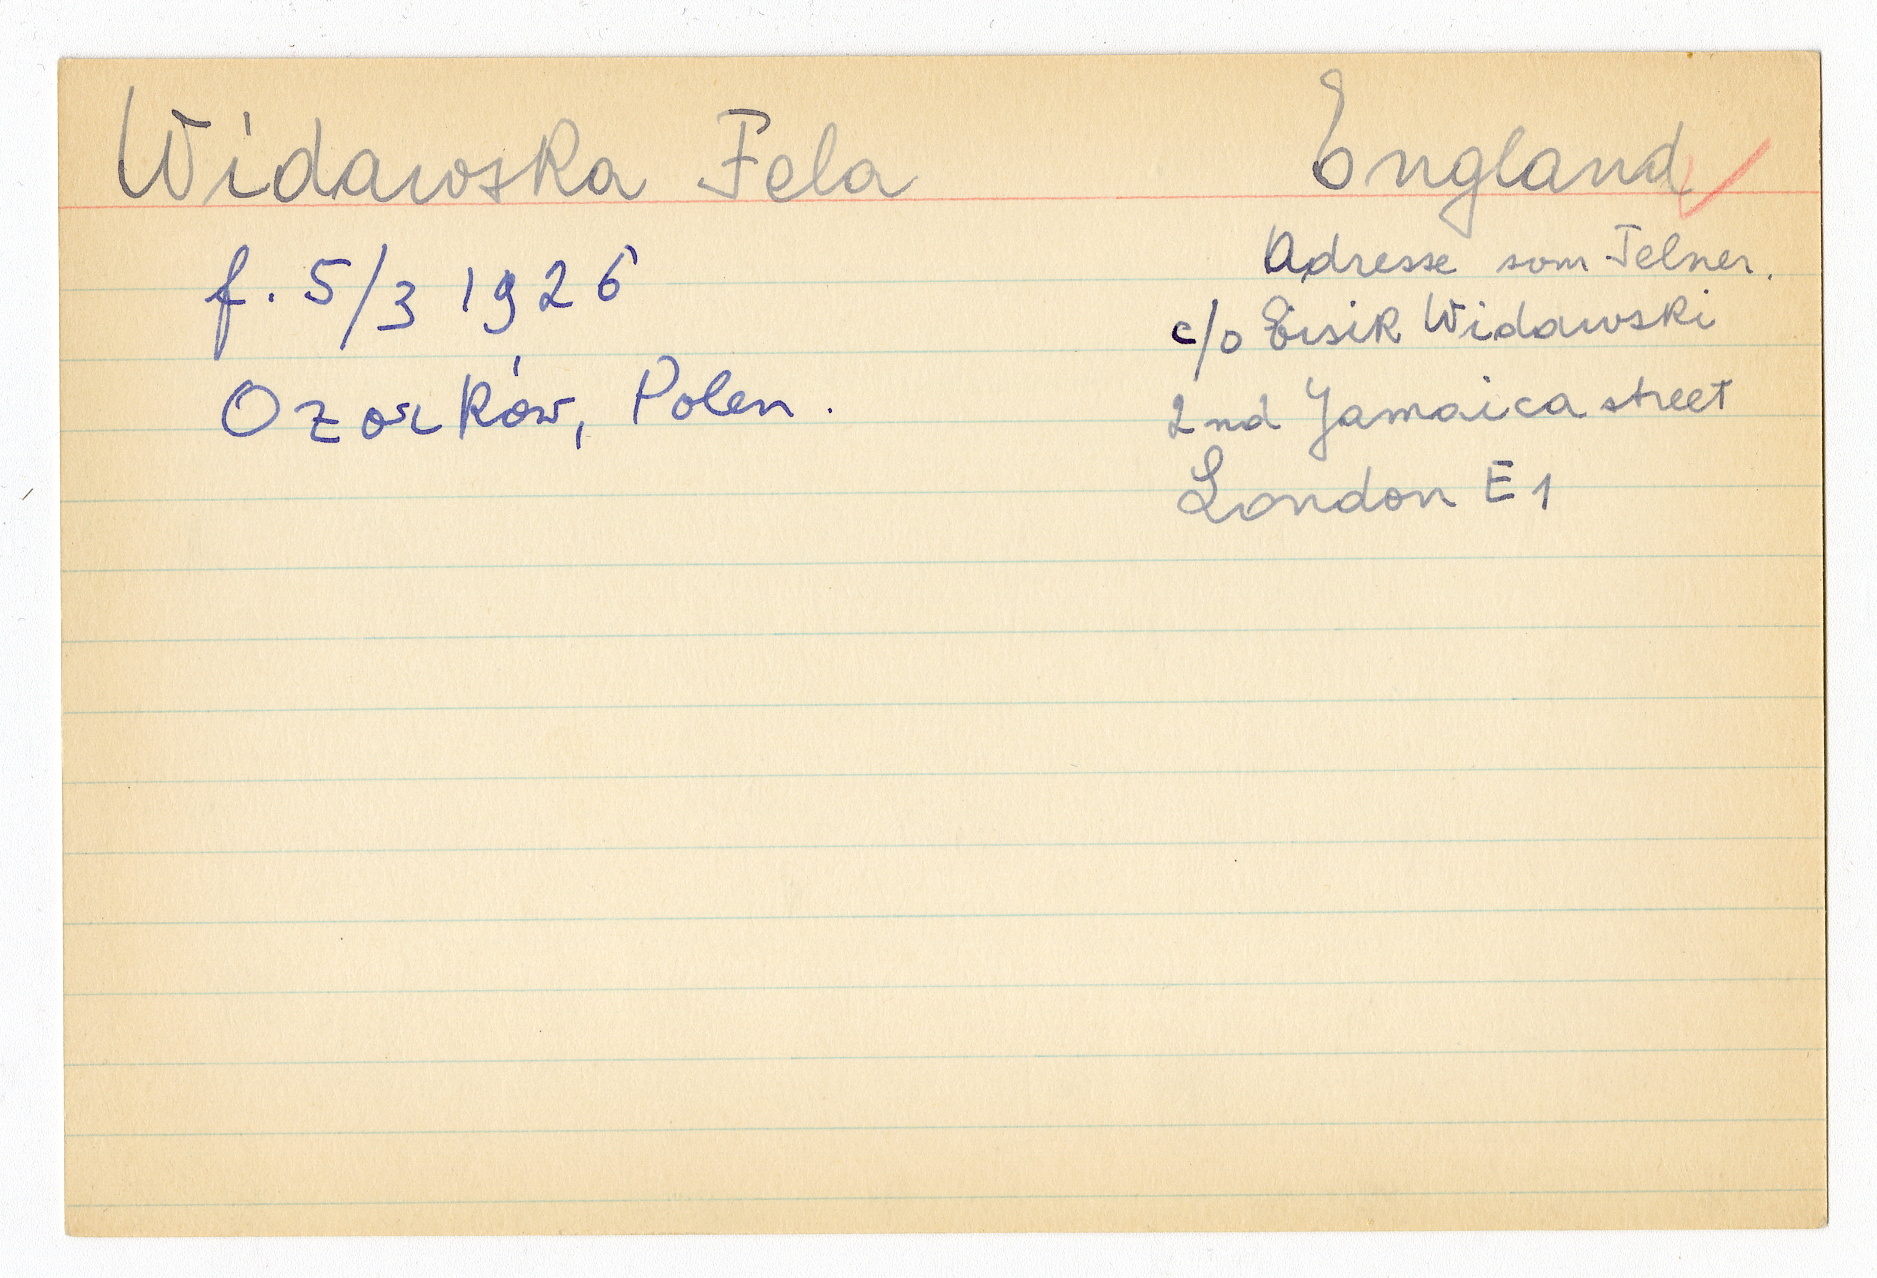 Widawska Fela
England
f. 5/3 1926
Ozorków, Polen.
Adresse som Felner.
c/o Eisik Widawski
2nd Jamaica street
London E1